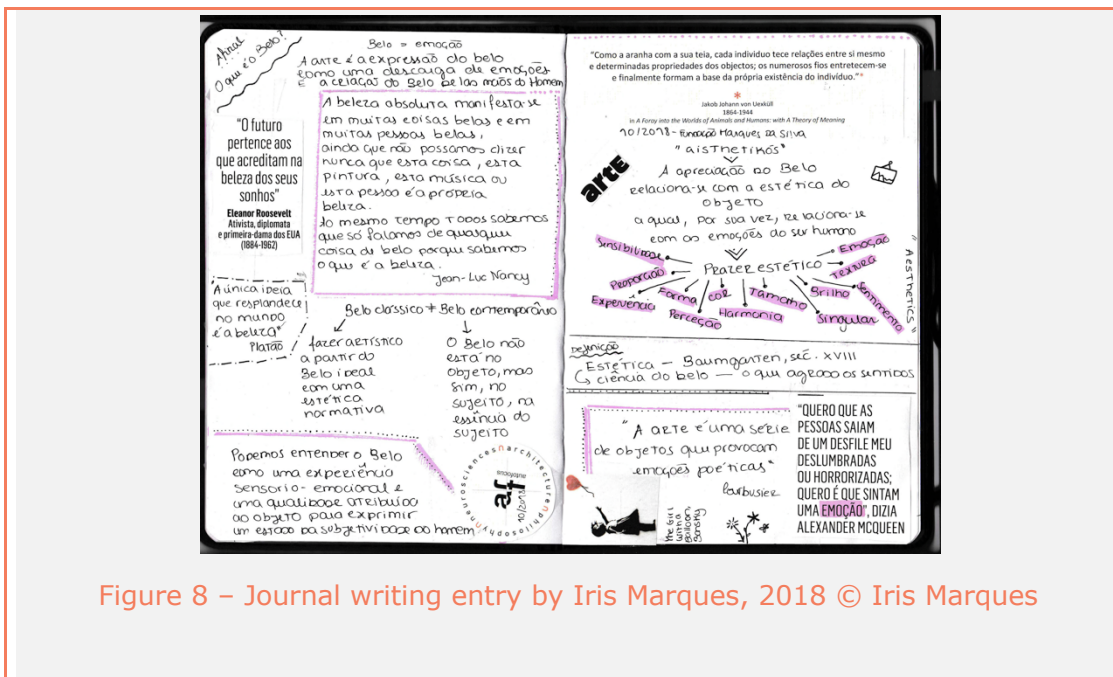 Afinal
O que é o Belo?
Belo = emoção
A arte é a expressão do belo
como uma descarga de emoções
É a criação do Belo pelas mãos do Homem
"O futuro
pertence aos
que acreditam na
beleza dos seus
sonhos"
Eleanor Roosevelt
Ativista, diplomata
e primeira-dama dos EUA
(1884-1962)
A beleza absoluta manifesta-se
em muitas coisas belas e em
muitas pessoas belas,
ainda que não possamos dizer
nunca que esta coisa, esta
pintura, esta música ou
esta pessoa é a própria
beleza.
Ao mesmo tempo todos sabemos
que só falamos de qualquer
coisa de belo porque sabemos
o que é a beleza.
Jean-Luc Nancy
"A única ideia
que resplandece
no mundo
é a beleza"
Platão
Belo clássico ≠ Belo contemporâneo
fazer artístico
a partir do
Belo ideal
com uma
estética
normativa
O Belo não
está no
objeto, mas
sim, no
sujeito, na
essência do
sujeito
Podemos entender o Belo
como uma experiência
sensorio-emocional e
uma qualidade atribuída
ao objeto para exprimir
um estado da subjetividade do homem.
neurosciencesnarchitecturenphilosophyn
10/2018
"Como a aranha com a sua teia, cada individuo tece relações entre si mesmo
e determinadas propriedades dos objectos; os numerosos fios entretecem-se
e finalmente formam a base da própria existência do indivíduo."*
*
Jakob Johann von Uexküll
1864-1944
in A Foray into the Worlds of Animals and Humans: with A Theory of Meaning
10/2018 - Fundação Marques da Silva
"aisthetikós"
artE
A apreciação do Belo
relaciona-se com a estética do
objeto
a qual, por sua vez, relaciona-se
com as emoções do ser humano
Prazer estético
Sensibilidade
Proporção
Experiência
Forma
Perceção
cor
Harmonia
Tamanho
Singular
Brilho
Sentimento
Textura
Emoção
"Aesthetics"
Definição
Estética — Baumgarten, séc. XVIII
ciência do belo — o que agrada os sentidos
"A arte é uma série
de objetos que provocam
emoções poéticas"
the Girl
with a
Balloon
Bansky
"QUERO QUE AS
PESSOAS SAIAM
DE UM DESFILE MEU
DESLUMBRADAS
OU HORRORIZADAS;
QUERO É QUE SINTAM
UMA EMOÇÃO", DIZIA
ALEXANDER MCQUEEN
Figure 8 – Journal writing entry by Iris Marques, 2018 © Iris Marques